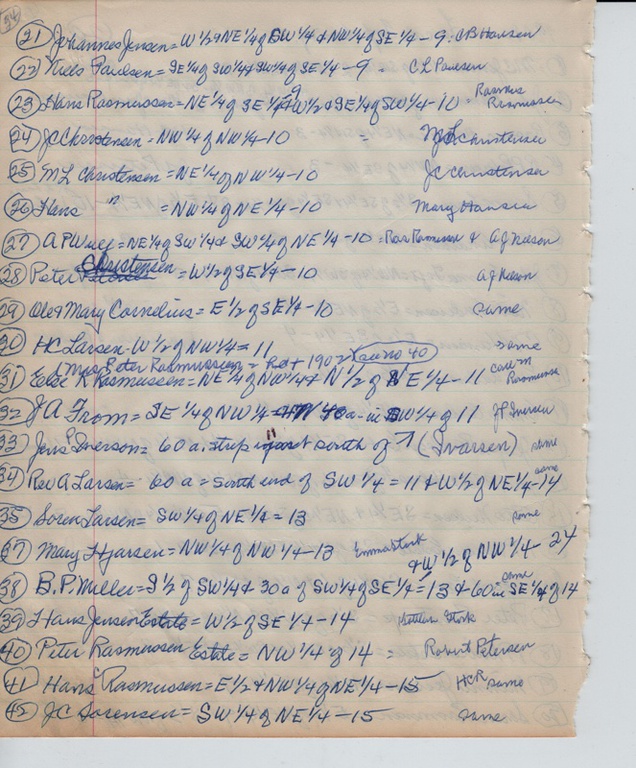 34
21 Johannes Jensen = W 1/2 & NE 1/4 of SW 1/4 & NW 1/4 of SE 1/4 - 9. CB Hansen
22 Niels Paulsen = SE 1/4 of SW 1/4 & SW 1/4 of SE 1/4 - 9 - C L Paulsen
23 Hans Rasmussen = NE 1/4 of SE 1/4 9 & W 1/2 & SE 1/4 of SW 1/4 - 10 - Rasmus Rasmussen
24 JC Christensen = NW 1/4 of NW 1/4 - 10 = ML Christensen
25 ML Christensen = NE 1/4 of NW 1/4 - 10 JC Christensen
26 Hans " = NW 1/4 of NE 1/4 - 10 Mary Hansen
27 A P Wulf = NE 1/4 of SW 1/4 & SW 1/4 of NE 1/4 - 10 = Ras Rasmussen & A J Nelson
28 Peter Christensen = W 1/2 of SE 1/4 - 10 A J Nelson
29 Ole & Mary Cornelius = E 1/2 of SE 1/4 - 10 same
30 HC Larsen - W 1/2 of NW 1/4 = 11 same
Mrs Peter Rasmussen = 1902 (see no 40)
31 Else K Rasmussen = NE 1/4 of NW 1/4 & N 1/2 of NE 1/4 - 11 Rasmussen
32 JA From = SE 1/4 of NW 1/4 40 a - in SW 1/4 of 11 JP Iversen
33 Jens P Iverson = 60 a. strip south of (Ivarsen) same
34 Rev A Larsen = 60 a = South end of SW 1/4 = 11 & W 1/2 of NE 1/4 - 14 same
35 Soren Larsen = SW 1/4 of NE 1/4 = 13 same
37 Mary Hjarsen = NW 1/4 of NW 1/4 - 13 Emma Stork & W 1/2 of NW 1/4 - 24
38 B.P. Miller = S 1/2 of SW 1/4 & 30 a of SW 1/4 of SE 1/4 = 13 & 60 in SE 1/4 of 14 same
39 Hans Jensen Estate = W 1/2 of SE 1/4 - 14 Stork
40 Peter Rasmussen Estate = NW 1/4 of 14 = Robert Petersen
41 Hans C Rasmussen = E 1/2 & NW 1/4 of NE 1/4 - 15 HCR same
42 JC Sorensen = SW 1/4 of NE 1/4 - 15 same